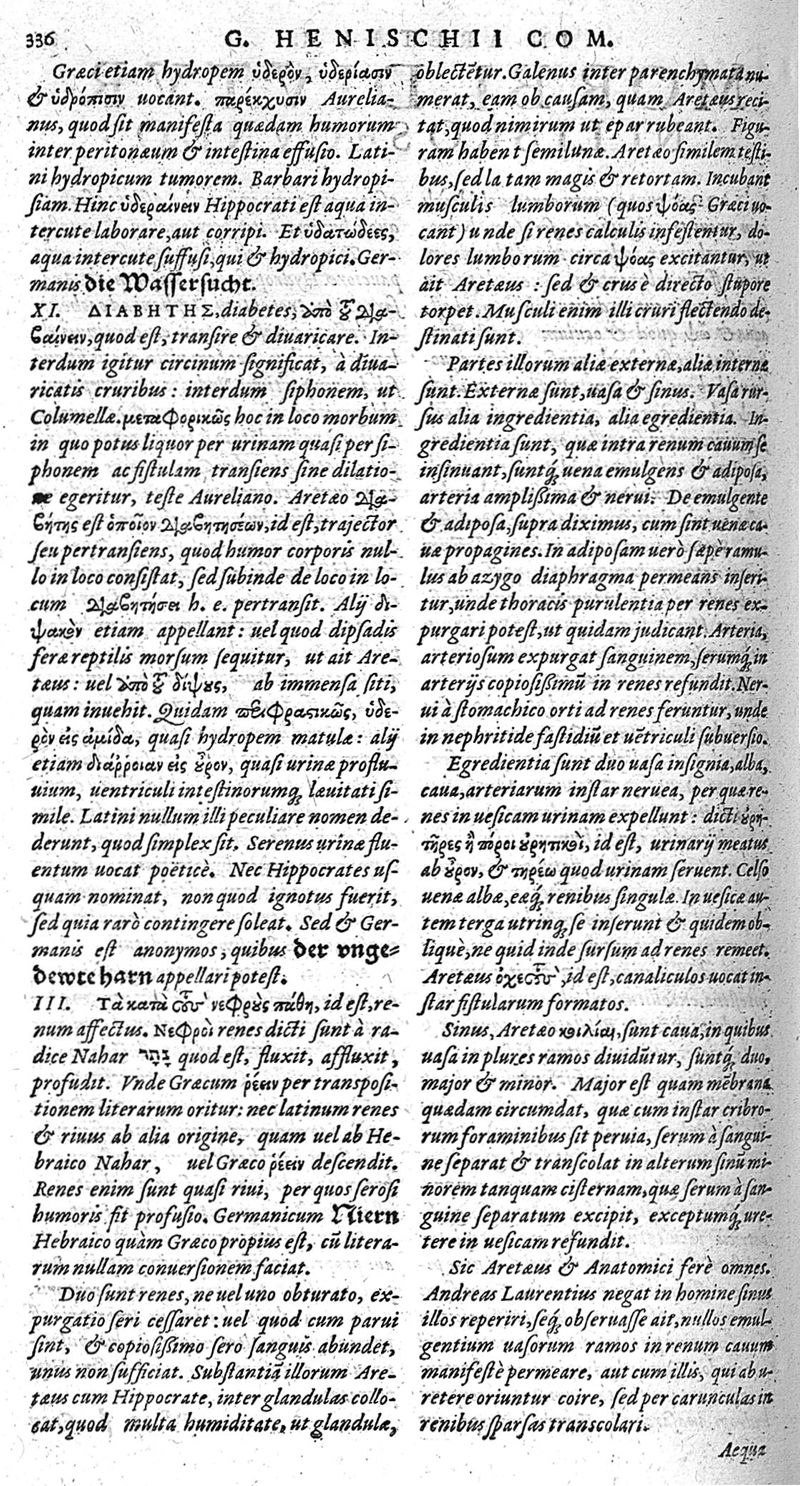 336
G. HENISCHII COM.
Græci etiam hydropem ὑδερὸν, ὑδερίασιν
& ὑδρόπισιν uocant. παρέκχυσιν Aurelia-
nus, quod sit manifesta quædam humorum
inter peritonæum & intestina effusio. Lati-
ni hydropicum tumorem. Barbari hydropi-
siam. Hinc ὑδεραίνειν Hippocrati est aqua in-
tercute laborare, aut corripi. Et ὑδατώδεες,
aqua intercute suffusi, qui & hydropici. Ger-
manis die Wassersucht.
XI. ΔΙΑΒΗΤΗΣ, diabetes, ἀπὸ τοῦ δια-
βαίνειν, quod est, transire & diuaricare. In-
terdum igitur circinum significat, à diua-
ricatis cruribus: interdum siphonem, ut
Columellæ. μεταφορικῶς hoc in loco morbum
in quo potus liquor per urinam quasi per si-
phonem ac fistulam transiens sine dilatio-
ne egeritur, teste Aureliano. Aretæo δια-
βήτης est ὁποῖον διαβητησέων, id est, trajector
seu pertransiens, quod humor corporis nul-
lo in loco consistat, sed subinde de loco in lo-
cum διαβητήσει h. e. pertransit. Alij δι-
ψακὸν etiam appellant: uel quod dipsadis
feræ reptilis morsum sequitur, ut ait Are-
tæus: uel ἀπὸ τοῦ δίψους, ab immensa siti,
quam inuehit. Quidam περιφρασικῶς, ὑδε-
ρὸν εἰς ἀμίδα, quasi hydropem matulæ: alij
etiam διάρροιαν εἰς οὖρον, quasi urinæ proflu-
uium, uentriculi intestinorumq́; læuitati si-
mile. Latini nullum illi peculiare nomen de-
derunt, quod simplex sit. Serenus urinæ flu-
entum uocat poëticè. Nec Hippocrates us-
quam nominat, non quod ignotus fuerit,
sed quia rarò contingere soleat. Sed & Ger-
manis est anonymos, quibus der vnge-
dewte harn appellari potest.
III. Τὰ κατὰ τοὺς νεφροὺς πάθη, id est, re-
num affectus. Νεφροὶ renes dicti sunt à ra-
dice Nahar נָהַר quod est, fluxit, affluxit,
profudit. Vnde Græcum ῥέειν per transposi-
tionem literarum oritur: nec latinum renes
& riuus ab alia origine, quam uel ab He-
braico Nahar, uel Græco ῥέειν descendit.
Renes enim sunt quasi riui, per quos serosi
humoris fit profusio. Germanicum Niern
Hebraico quàm Græco propius est, cū litera-
rum nullam conuersionem faciat.
Duo sunt renes, ne uel uno obturato, ex-
purgatio seri cessaret: uel quod cum parui
sint, & copiosissimo sero sanguis abundet,
unus non sufficiat. Substantiā illorum Are-
tæus cum Hippocrate, inter glandulas collo-
cat, quod multa humiditate, ut glandulæ,
oblectētur. Galenus inter parenchymata nu-
merat, eam ob causam, quam Aretæus reci-
tat, quod nimirum ut epar rubeant. Figu-
ram habent semilunæ. Aretæo similem testi-
bus, sed latam magis & retortam. Incubant
musculis lumborum (quos ψόας Græci uo-
cant) unde si renes calculis infestentur, do-
lores lumborum circa ψόας excitantur, ut
ait Aretæus: sed & crus è directo stupore
torpet. Musculi enim illi cruri flectendo de-
stinati sunt.
Partes illorum aliæ externæ, aliæ internæ
sunt. Externæ sunt, uasa & sinus. Vasa rur-
sus alia ingredientia, alia egredientia. In-
gredientia sunt, quæ intra renum cauum se
insinuant, suntq́; uena emulgens & adiposa,
arteria amplissima & nerui. De emulgente
& adiposa, supra diximus, cum sint uenæ ca-
uæ propagines. In adiposam uerò sæpè ramu-
lus ab azygo diaphragma permeans inseri-
tur, unde thoracis purulentia per renes ex-
purgari potest, ut quidam judicant. Arteria,
arteriosum expurgat sanguinem, serumq́; in
arterijs copiosissimū in renes refundit. Ner-
ui à stomachico orti ad renes feruntur, unde
in nephritide fastidiū et uētriculi subuersio.
Egredientia sunt duo uasa insignia, alba,
caua, arteriarum instar neruea, per quæ re-
nes in uesicam urinam expellunt: dicti οὐρη-
τῆρες ἢ πόροι οὐρητικοὶ, id est, urinarij meatus
ab οὖρον, & τηρέω quod urinam seruent. Celso
uenæ albæ, eæq́; renibus singulæ. In uesicæ au-
tem terga utrinq; se inserunt & quidem ob-
liquè, ne quid inde sursum ad renes remeet.
Aretæus ὀχετοὺς, id est, canaliculos uocat in-
star fistularum formatos.
Sinus, Aretæo κοιλίαι, sunt caua, in quibus
uasa in plures ramos diuidūtur, suntq́; duo,
major & minor. Major est quam mēbrana
quædam circumdat, quæ cum instar cribro-
rum foraminibus sit peruia, serum à sangui-
ne separat & transcolat in alterum sinū mi-
norem tanquam cisternam, quæ serum à san-
guine separatum excipit, exceptumq́; ure-
tere in uesicam refundit.
Sic Aretæus & Anatomici ferè omnes.
Andreas Laurentius negat in homine sinus
illos reperiri, seq́; obseruasse ait, nullos emul-
gentium uasorum ramos in renum cauum
manifestè permeare, aut cum illis, qui ab u-
retere oriuntur coire, sed per carunculas in
renibus sparsas transcolari.
Aequa